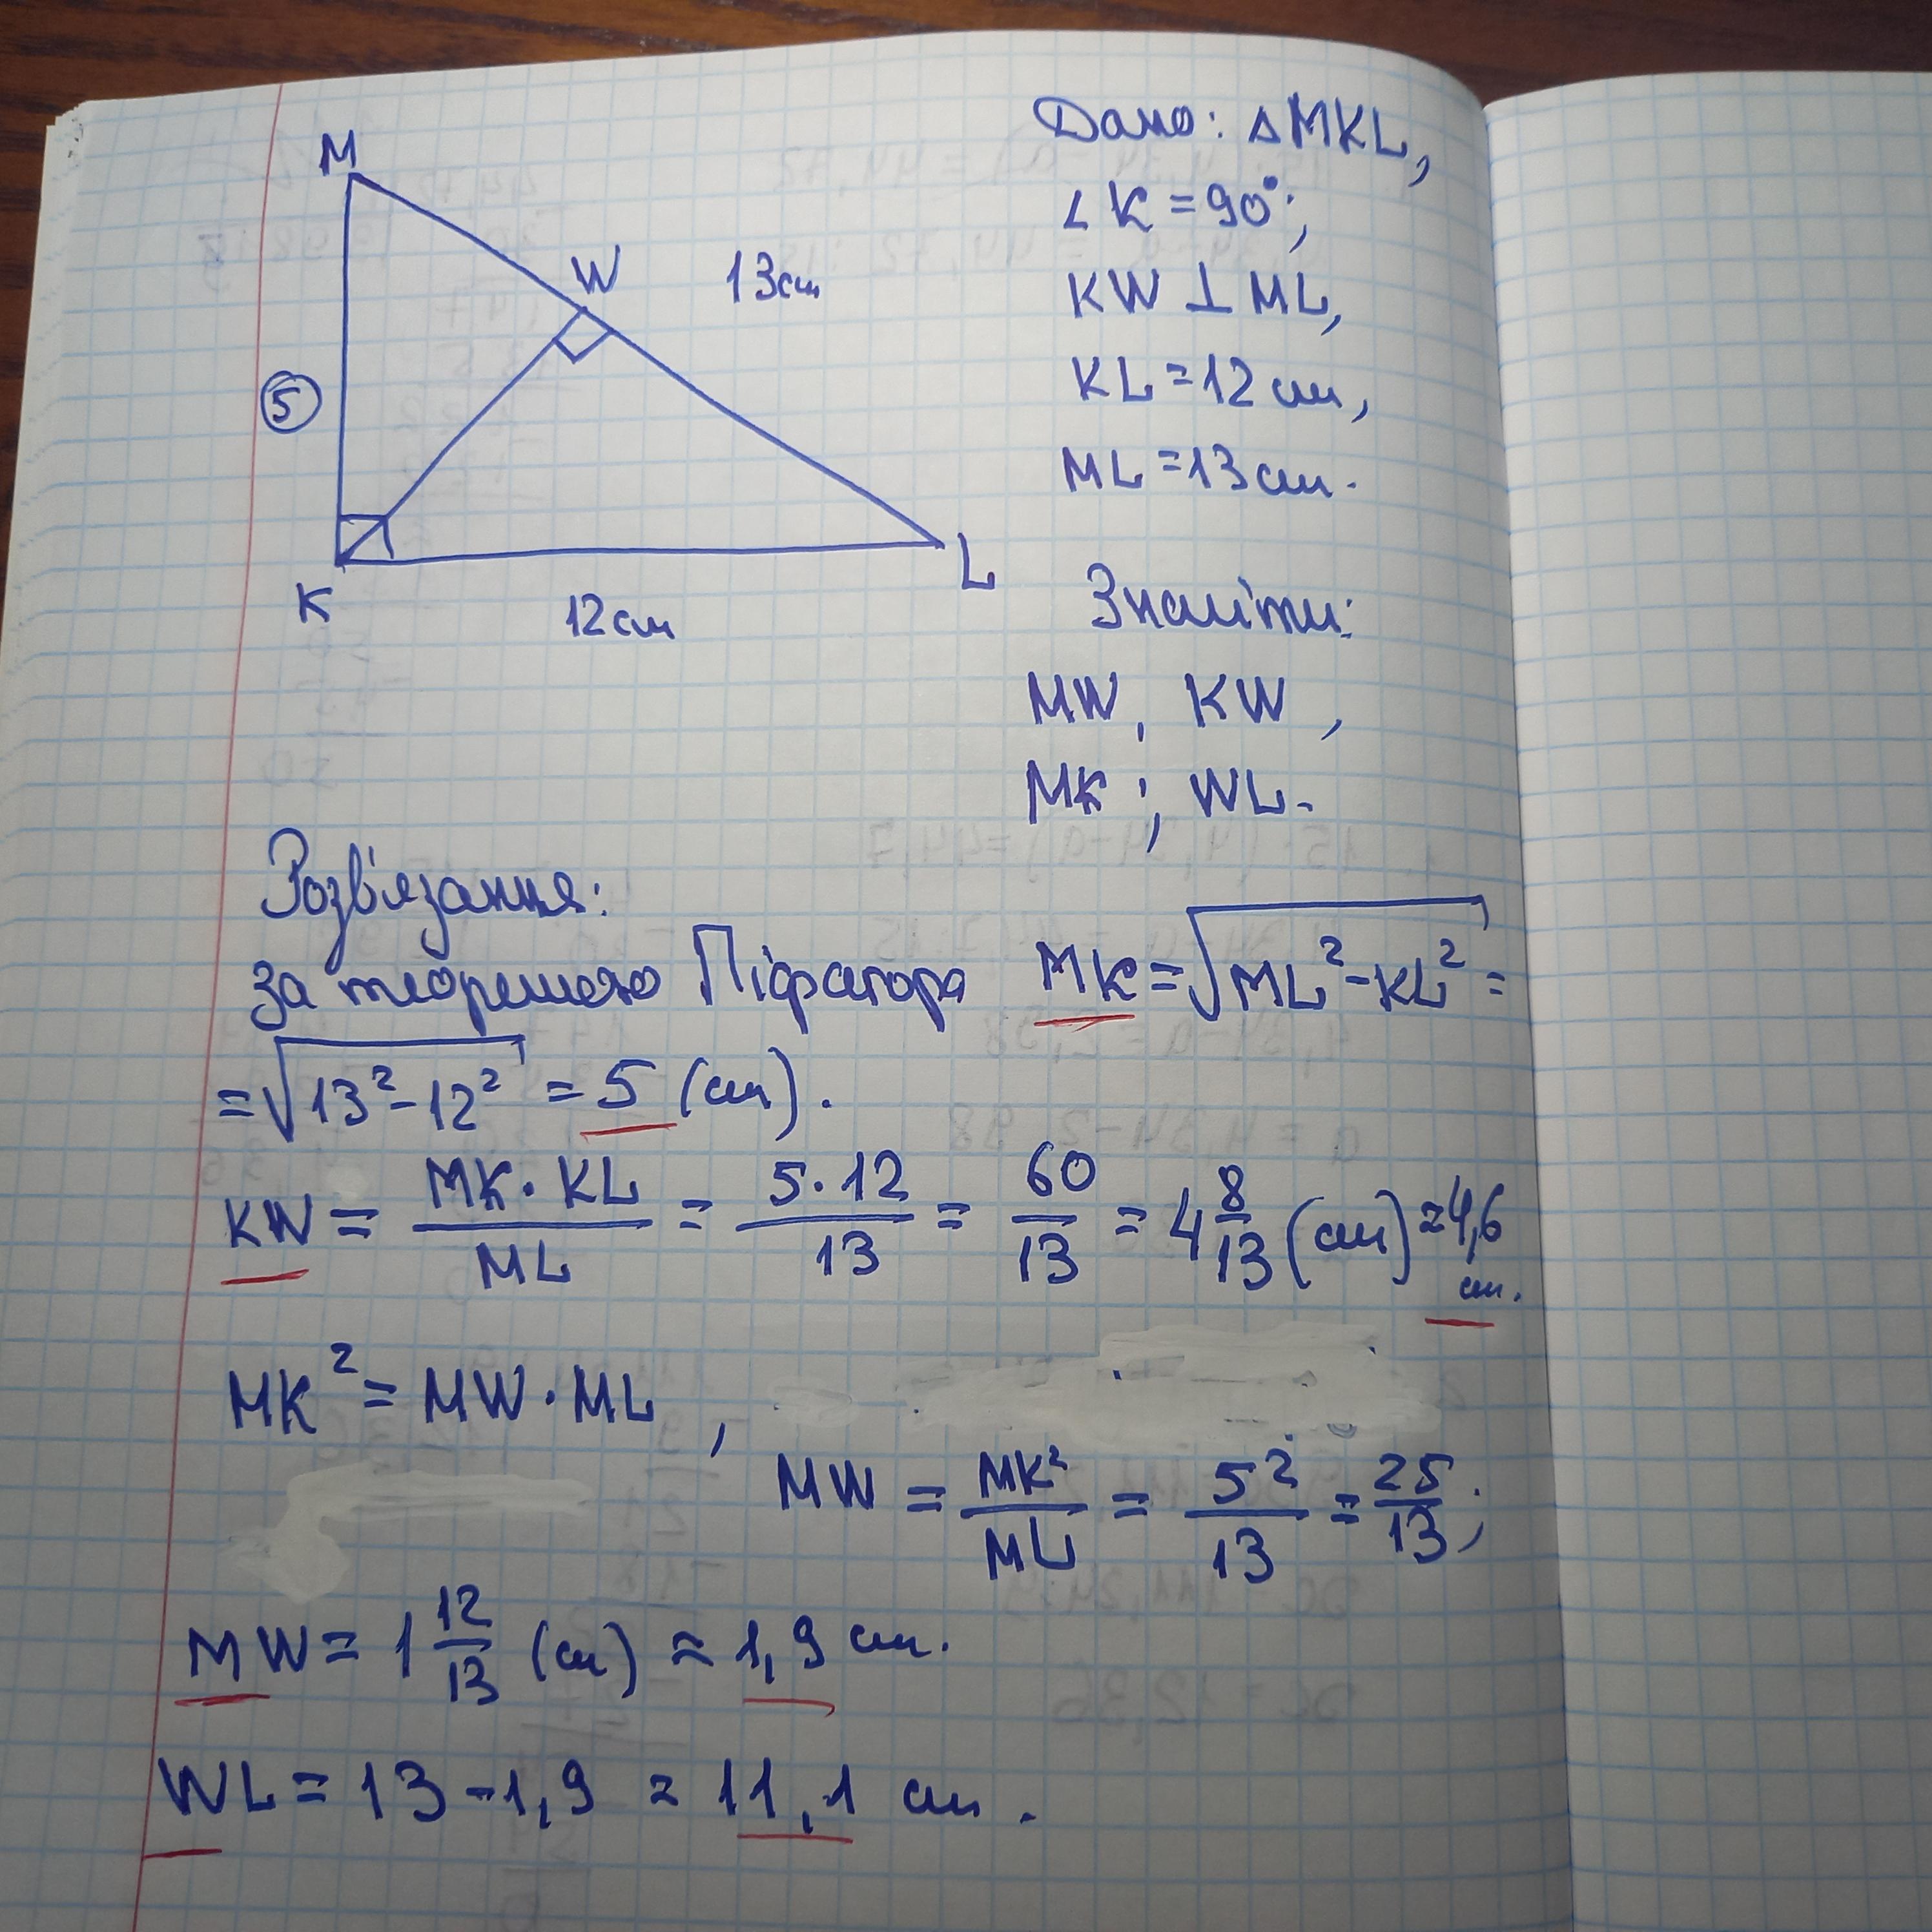 M
W
13см
5
K
12см
L
Дано: △MKL,
∠K = 90°;
KW ⊥ ML,
KL = 12 см,
ML = 13 см.
Знайти:
MW, KW,
MK; WL.
Розв'язання:
За теоремою Піфагора MK = √(ML² - KL²) =
= √(13² - 12²) = 5 (см).
KW = MK · KL / ML = 5 · 12 / 13 = 60/13 = 4 8/13 (см) ≈ 4,6 см.
MK² = MW · ML,
MW = MK²/ML = 5²/13 = 25/13;
MW = 1 12/13 (см) ≈ 1,9 см.
WL = 13 - 1,9 ≈ 11,1 см.